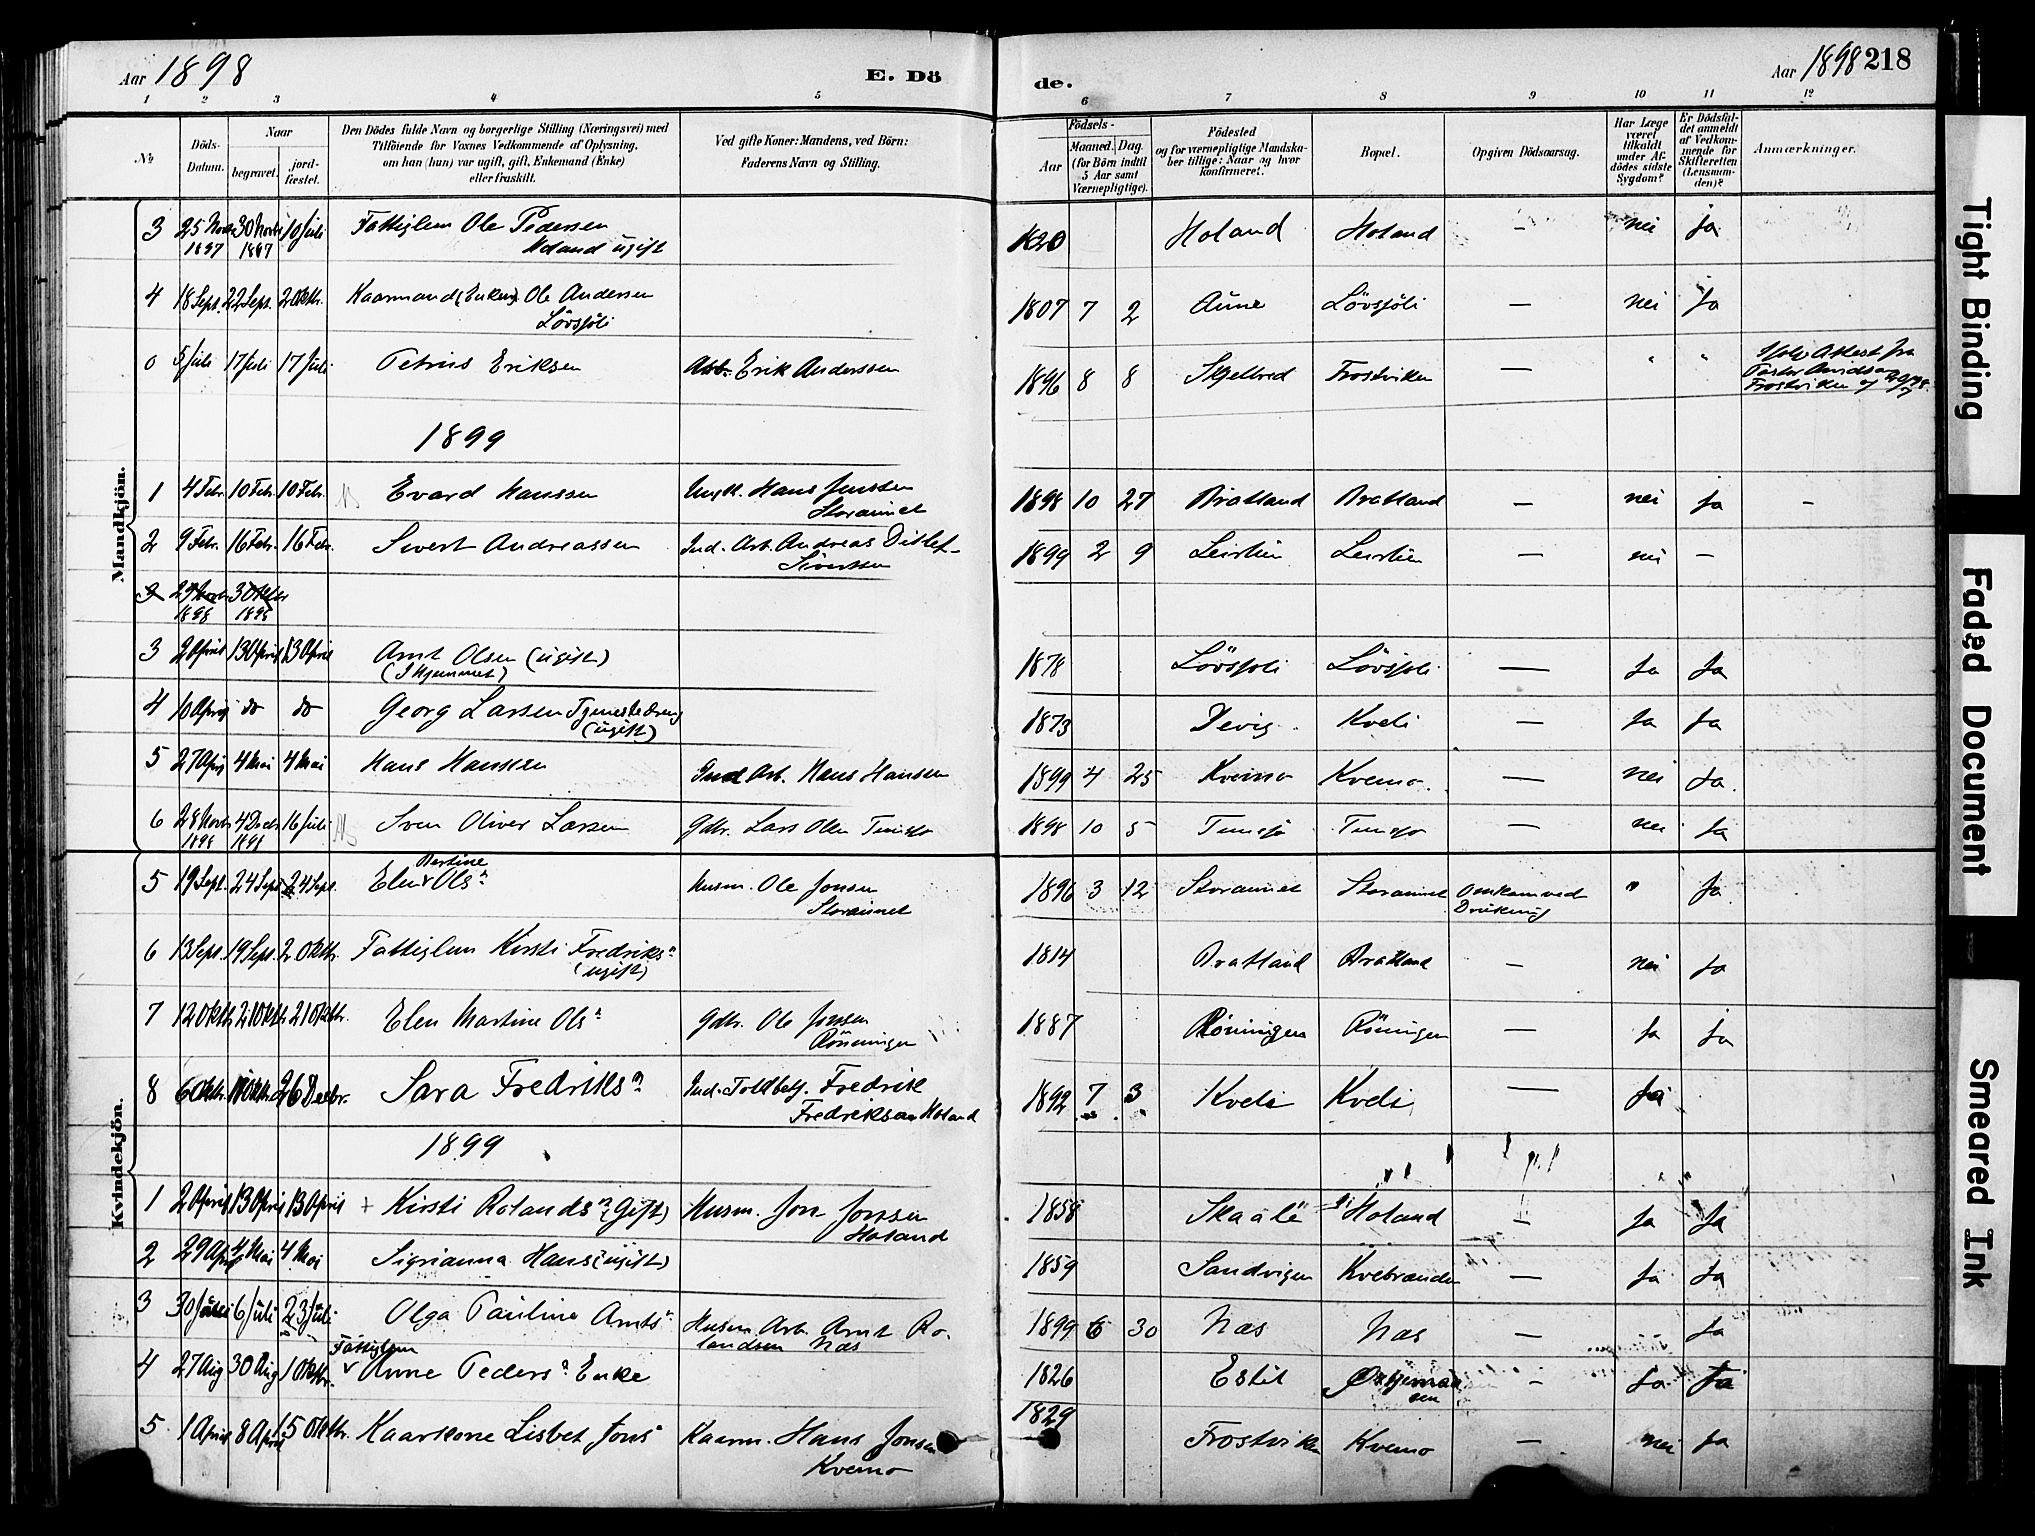 Aar 1898 E. Dö de. Aar 1898 218
1 2 3 4 5 6 7 8 9 10 11 12
№
Döds-Datum.
Naar
begravet.
jord-fæstet.
Den Dödes fulde Navn og borgerlige Stilling (Næringsvei) med
Tilföiende for Voxnes Vedkommende af Oplysning,
om han (hun) var ugift, gift, Enkemand (Enke)
eller fraskilt.
Ved gifte Koner: Mandens, ved Börn:
Faderens Navn og Stilling.
Födsels-
Aar
Maaned. Dag.
(for Börn indtil
5 Aar samt
Værnepligtige).
Födested
og for værnepligtige Mandska-
ber tillige: Naar og hvor
konfirmeret.
Bopæl.
Opgiven Dödsaarsag.
Har Læge
været
tilkaldt
under Af-
dödes sidste
Sygdom?
Er Dödsfal-
det anmeldt
af Vedkom-
mende for
Skifteretten
(Lensman-
den)?
Anmærkninger.
Mandkjön.
3 25 Novbr 1897 30 Novbr 1897 10 Juli Fattiglem Ole Pedersen
Holand ugift 1820 Holand Holand — nei ja
4 18 Sept. 22 Sept. 2 Oktbr. Kaarmand (Enkem) Ole Andersen
Lövsjöli 1807 7 2 Aune Lövsjöli — nei ja
0 5 Juli 17 Juli 17 Juli Petrus Eriksen Arb. Erik Anderssen 1896 8 8 Skjelbred Frostviken — " " Ifölge Attest fra
Pastor
Frostviken af
1899
1 4 Febr. 10 Febr. 10 Febr. Evard Hanssen Hans Jenssen
Storaunet 1898 10 27 Bratland Bratland — nei ja -
2 9 Febr. 16 Febr. 16 Febr. Sivert Andreassen Ind. Arb. Andreas Ditlef-
Sivertsen 1899 2 9 Leirlien Leirlien — nei —
3 1898 1898
3 2 April 13 April 13 April Arnt Olsen (ugift) 1878 Lövsjöli Lövsjoli — Ja Ja
4 10 April do do Georg Larsen Tjenestedreng
(ugift) 1873 Devig Kveli — Ja Ja
5 27 April 4 Mai 4 Mai Hans Hanssen Ind Arb. Hans Hansen 1899 4 25 Kvemo Kvemo. — nei Ja.
6 28 Novbr 1898 4 Decbr 1898 16 Juli Sven Oliver Larsen Gdbr. Lars Olsen Tunsjø 1898 10 5 Tunsjø Tunsjø — nei Ja
Kvindekjön.
5 19 Sept. 24 Sept. 24 Sept. Elen Bertine Olsⁿ Husm. Ole Jonsen
Storaunet 1896 3 12 Storaunet Storaunet Omkom ved
Drukning " Ja.
6 13 Sept. 19 Sept. 2 Oktbr. Fattiglem Kirsti Fredriksⁿ
(ugift) 1814 Bratland Bratland — nei Ja
7 12 Oktbr. 21 Oktbr 21 Oktbr. Elen Martine Olsⁿ Gdbr. Ole Jonsen
Rönningen 1887 Rönningen Röningen — Ja Ja
8 6 Oktbr. 26 Decbr. Sara Fredriksⁿ Ind. Toldbetj. Fredrik
Fredriksen Holand 1892 7 3 Kveli Kveli — Ja
1899
1 2 April 13 April 13 April + Kirsti Rolandsⁿ (Gift) Husm. Jon Jonsen
Holand 1858 Skaale Holand — Ja Ja
2 29 April 4 Mai 4 Mai Sigrianna Hans (ugift) 1859 Sandvigen Kvebranden — Ja Ja
3 30 Juni 6 Juli 23 Juli Olga Pauline Arntsⁿ Husm. Arb. Arnt Ro-
landsen Næs 1899 6 30 Næs Næs — Ja
4 27 Aug 30 Aug 1 Oktbr. Fattiglem
Anne Pedersⁿ Enke 1826 Estil — Ja Ja
5 1 April 8 April 15 Oktbr. Kaarkone Lisbet Jonsⁿ Kaarm. Hans Jonsen
Kvemo 1829 Frostviken Kvemo — nei Ja
Tight Binding
Faded Document
Smeared Ink